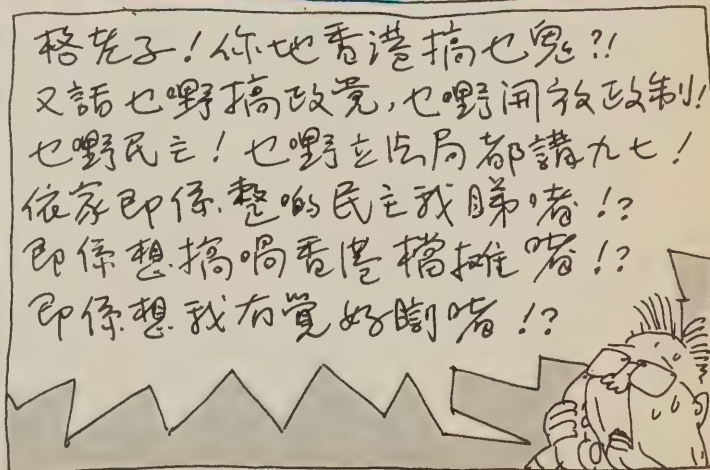 格老子！你地香港搞乜鬼？！
又話乜嘢搞政党，乜嘢開放政制！
乜嘢民主！乜嘢立法局都講九七！
依家即係整啲民主我睇啫！？
即係想搞喎香港檔攤啫！？
即係想我冇覺好瞓啫！？